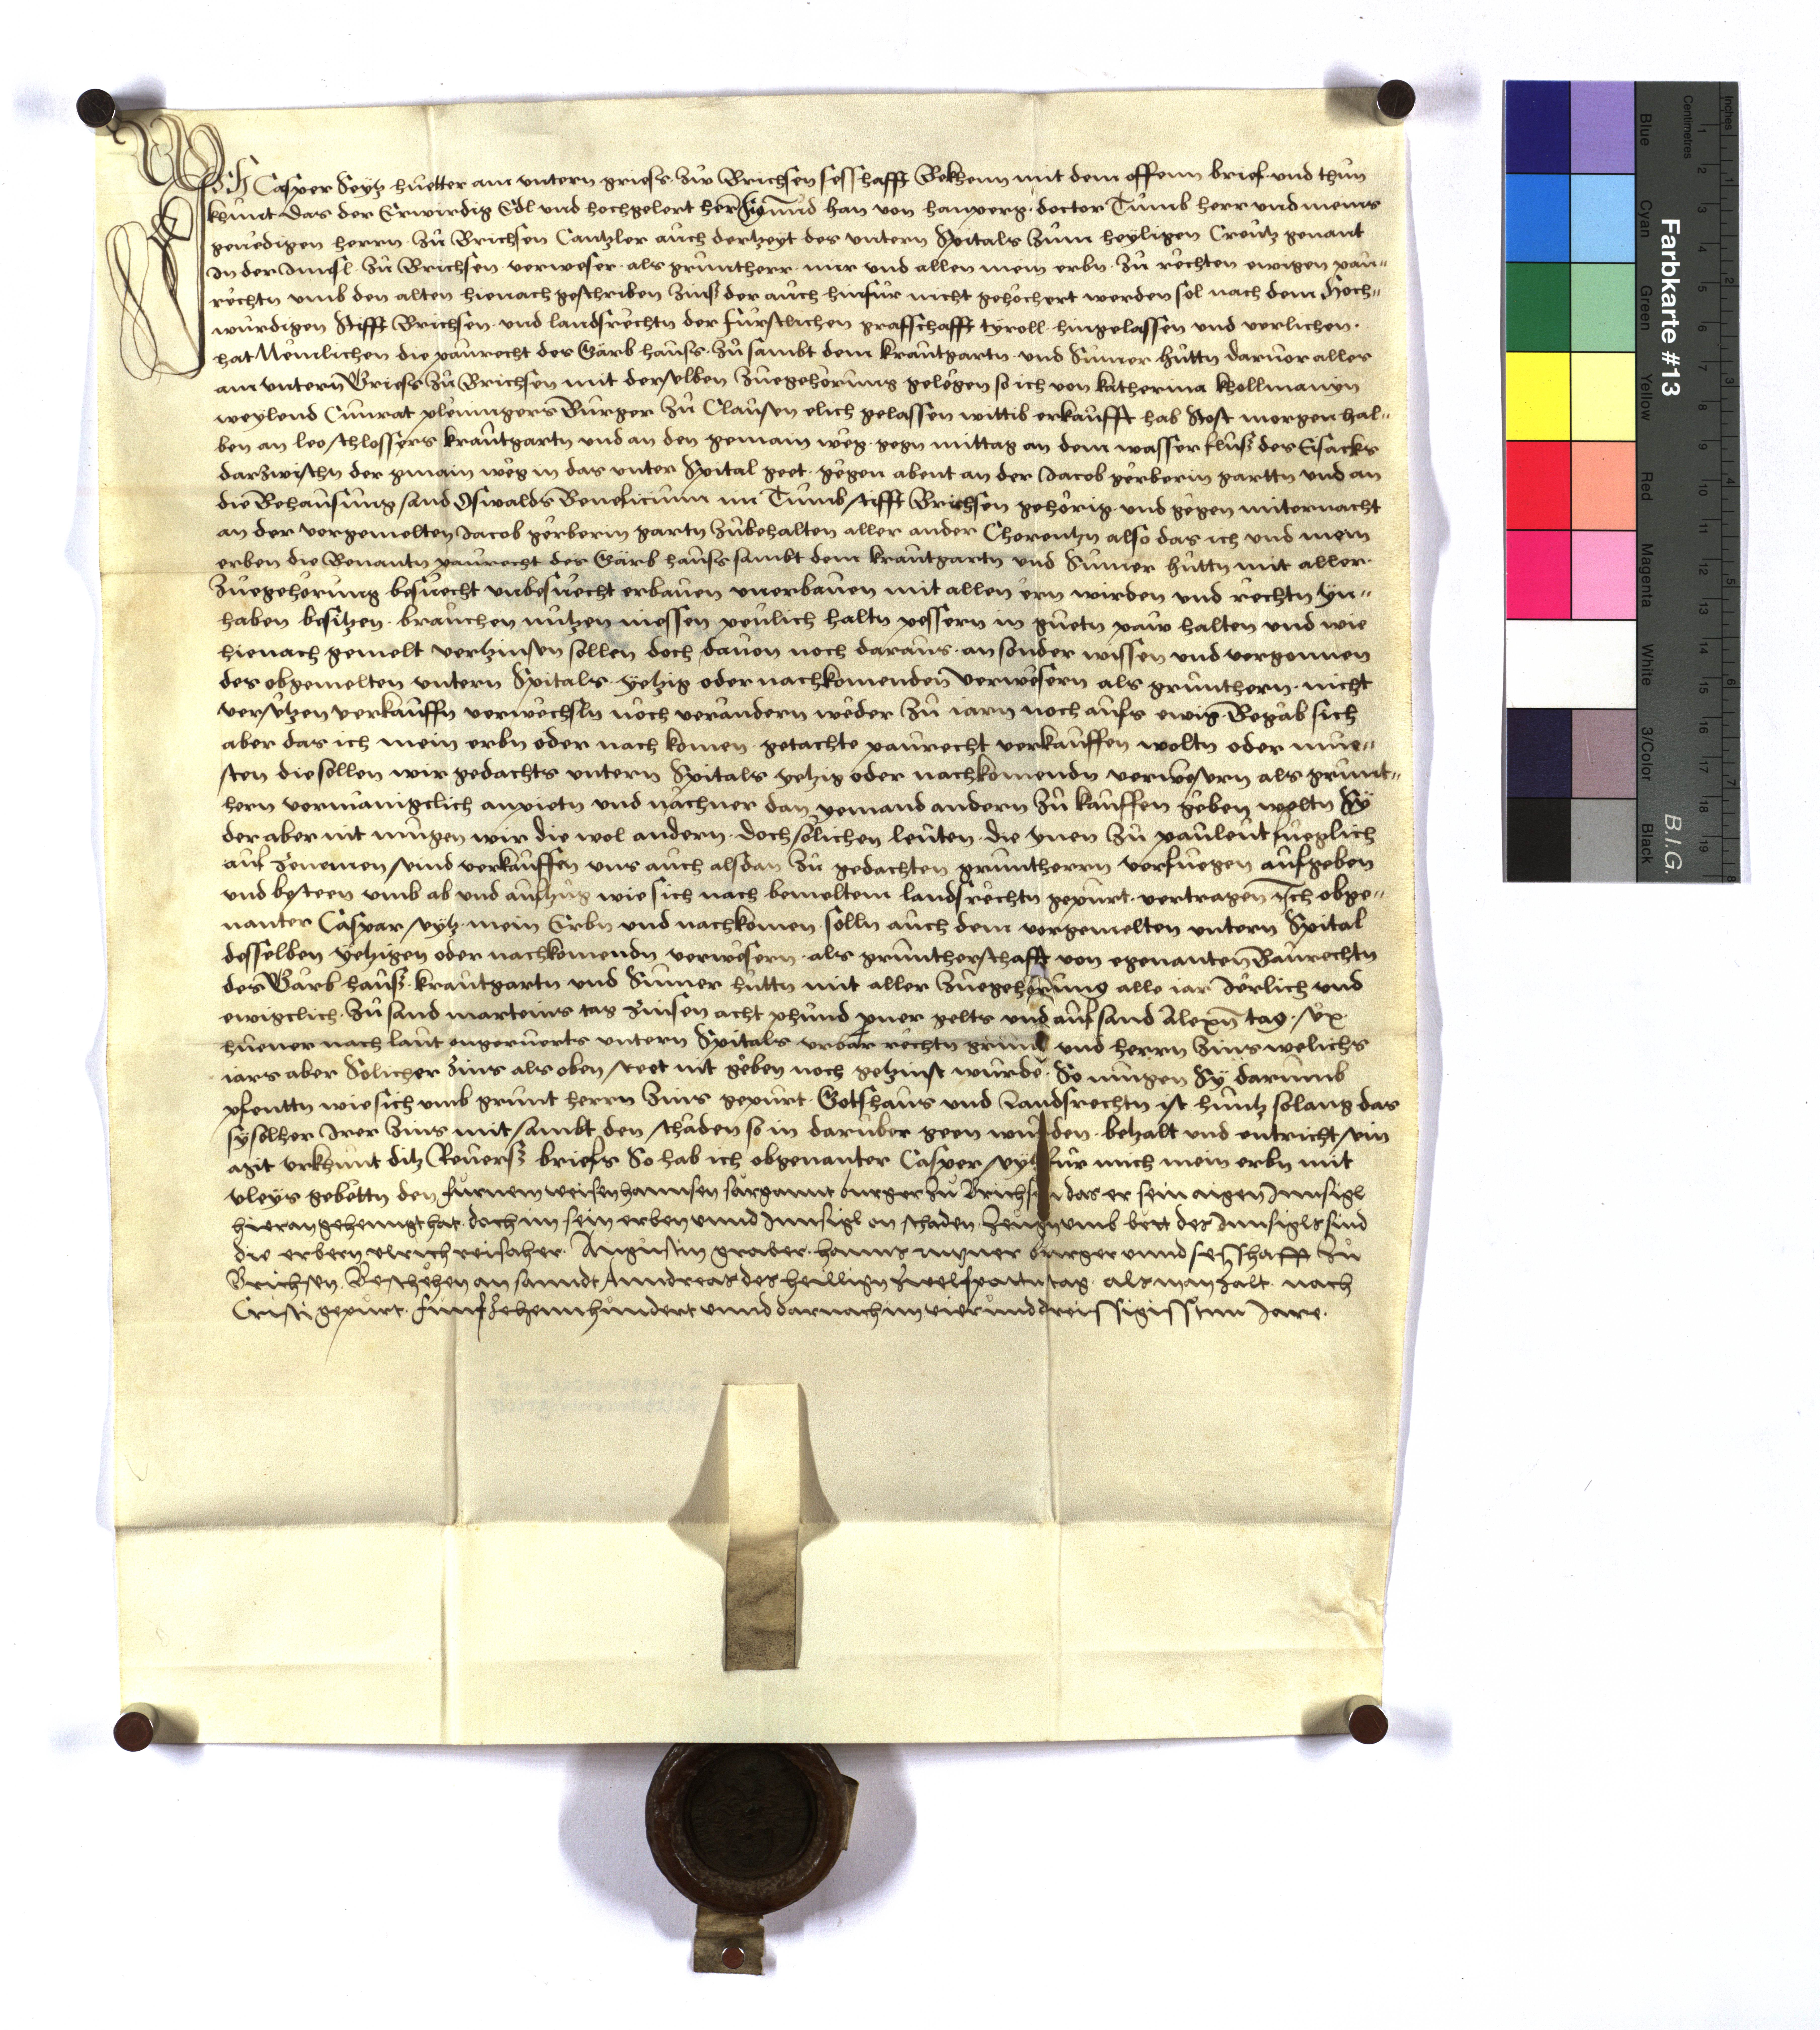 Ich Casper Seytz huetter am untern griess zw Brichsen sesshafft Bekhenn mit dem offenn brief und thun
khunt das der Erwirdig Edl und hochgelert herr Sigmund han von hanperg doctor Tumb herr und meins
genedigen herrn zu Brichsen Cantzler auch dertzeyt des untern Spitals zum heyligen Creutz genant
in der Innsl zu Brichsen verweser als gruntherr mir und allen mein erbn zu rechten ewigen pau=
rechtn umb den alten hienach geschriben zinss der auch hinfur nicht gehochert werden sol nach dem Hoch=
wurdigen Stifft Brichsen und landsrechtn der furstlichen grafschafft tyroll hingelassen und verlichen
hat Nemlichen die paurecht des Gärb hauss zu sambt dem krautgartn und Sumer huttn daruor alles
am untern Griess zu Brichsen mit derselben zuegehorung gelegen so ich von katherina khollmanyn
weylend Cunrat pleningers Burger zu Clausen elich gelassen wittib erkaufft hab Stost morgen hal=
ben an leo schlossers krautgartn und an den gemain weg gegn mittag an dem wasser fluss des Eisacks
darzwischn der gmain weg in das unter Spital geet gegen abent an der Jacob gerberin gartn und an
die Behausung sand Oswalds Beneficium im Tumb stifft Brichsen gehorig und gegen miternacht
an der vorgemelten Jacob gerberin gartn zubehalten aller ander Cherentzn also das ich und mein
erben die Benantn paurecht des Gärb hauss sambt dem krautgartn und Sumer huttn mit aller
zuegehorung besuecht unbesuecht erbauen unerbauen mit allen ern wirden und rechtn yn=
haben besitzen brauchen nutzen niessen peulich haltn pessern in guetn paw halten und wie
hienach gemelt vertzinsen sollen doch dauon noch daraus an sonder wissen und vergonnen
des obgemelten untern Spitals yetzig oder nachkomenden verwesern als grunthern nicht
versetzen verkauffn verwechsln noch verandern weder zu iarn noch aufs ewig Begab sich
aber das ich mein erbn oder nach komen getachte paurecht verkauffen woltn oder mue=
sten die sollen wir gedachts untern Spitals yetzig oder nachkomendn verwesern als grunt=
hern vormänigclich anpietn und nächner dan yemand andern zu kauffen geben woltn Sy
der aber nit mugen wir die wol andern doch solichen leuten die ynen zu pauleut fueglich
auf zenemen sind verkauffen uns auch alsdan zu gedachten gruntherrn verfuegen aufgeben
und besteen umb ab und aufzug wie sich nach bemeltem landsrechtn gepurt vertragen Ich obge=
nanter Caspar seytz mein Erbn und nachkomen solln auch dem vorgemelten untern Spital
desselben yetzigen oder nachkomendn verwesern als gruntherschafft von egenanten Baurechtn
des Gärb hauss krautgartn und Sumer huttn mit aller zuegehorung alle iar Jerlich und
ewigclich zu sand marteins tag zinsen acht phund perner gelts und auf sand Alexn tag sex
huener nach laut ungeruerts untern Spitals urbar rechtn grund und herrn zins welichs
iars aber Solicher zins als oben steet nit geben noch getzinst wurde So mugen Sy darumb
pfenttn wie sich umb grunt herrn zins gepurt Gotshaus und Landsrechtn ist huntz solang das
sy solher Irer zins mit sambt den schaden so in daruber geen wurden betzalt und entricht sein
 urkhunt ditz Reuerss briefs So hab ich obgenanter Casper seytz fur mich mein erbn mit
vleys gebettn den furnem weisen hannsen sargannt burger zu Brichsen das er sein aigen Innsigl
hieran gehenngt hat doch im sein erben unnd Innsigl on schaden Zeugn umb bett des Innsigls sind
die erbern ulrich reisaher Augustin graber hanns  burger unnd sesshafft zu
Brichsen Beschehen an sanndt Anndreas des heilligen zwelfpottn tag als man zalt nach
Cristi gepurt funfzehennhundert unnd darnach im vierunddreissigisstnn Jare
Farbkarte #13
B.I.G.
Inches
Centimetres
1 2 3 4 5 6 7 8 9 10 11 12 13 14 15 16 17 18 19
1 2 3 4 5 6 7 8
Blue
Cyan
Green
Yellow
Red
Magenta
White
3/Color
Black